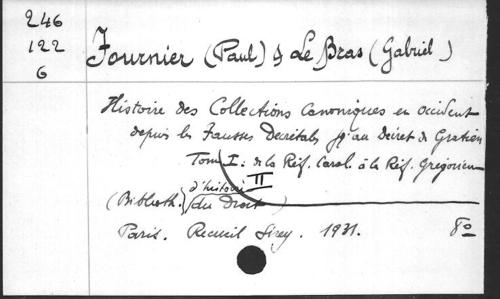 246
122
6
Fournier (Paul) & Le Bras (Gabriel)
Histoire des Collections Canoniques en Occident
depuis les Fausses Decrétales jq'au Décret de Gratien
Tome I: de la Réf. Carol. à la Réf. Grégorienne
II
d'histoire
(Biblioth. du Droit)
Paris. Recueil Sirey. 1931. 8o